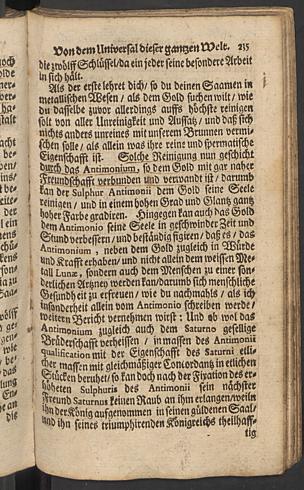 Von dem Universal dieser gantzen Welt. 235
die zwölff Schlüssel/da ein jeder seine besondere Arbeit
in sich hält.
Als der erste lehret dich/ so du deinen Saamen in
metallischen Wesen/ als dem Gold suchen wilt/ wie
du dasselbe zuvor allerdings auffs höchste reinigen
solt von aller Unreinigkeit und Aussatz/ und daß sich
nichts anders unreines mit unserem Brunnen vermi-
schen solle/ als allein was ihre reine und spermatische
Eigenschafft ist. Solche Reinigung nun geschicht
durch das Antimonium, so dem Gold mit gar naher
Freundschafft verbunden und verwandt ist/ darumb
kan der Sulphur Antimonii dem Gold seine Seele
reinigen/ und in einem hohen Grad und Glantz gantz
hoher Farbe gradiren. Hingegen kan auch das Gold
dem Antimonio seine Seele in geschwinder Zeit und
Stund verbessern/ und beständig figiren/ daß es/ das
Antimonium, neben dem Gold zugleich in Würde
und Krafft erhaben/ und nicht allein dem weissen Me-
tall Lunæ, sondern auch dem Menschen zu einer son-
derlichen Artzney werden kan/darumb sich menschliche
Gesundheit zu erfreuen/ wie du nachmahls/ als ich
insonderheit allein vom Antimonio schreiben werde/
weitern Bericht vernehmen wirst: Und ob wol das
Antimonium zugleich auch dem Saturno gesellige
Brüderschafft verheissen/ in massen des Antimonii
qualification mit der Eigenschafft des Saturni etli-
cher massen mit gleichmäßiger Concordantz in etlichen
Stücken beruhet/ so kan doch nach der Fixation des er-
höheten Sulphuris des Antimonii sein nächster
Freund Saturnus keinen Raub an ihm erlangen/weiln
ihn der König aufgenommen in seinen güldenen Saal/
und ihn seines triumphirenden Königreichs theilhaff-
tig